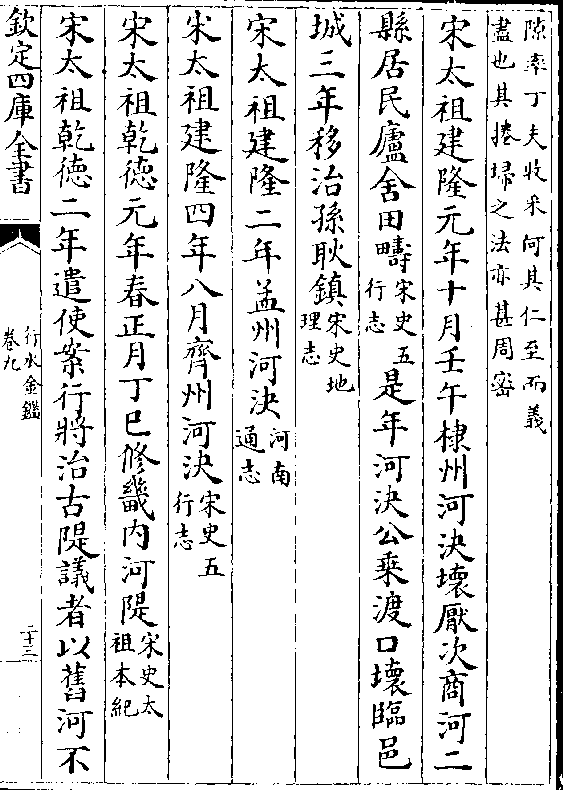 隙率丁夫收采何其仁至而義
盡也其捲埽之法亦甚周密
宋太祖建隆元年十月壬午棣州河決壞厭次商河二
縣居民廬舍田疇宋史五行志是年河決公乗渡口壞臨邑
城三年移治孫耿鎮宋史地理志
宋太祖建隆二年孟州河決河南通志
宋太祖建隆四年八月齊州河決宋史五行志
宋太祖乾德元年春正月丁巳修畿内河隄宋史太祖本紀
宋太祖乾德二年遣使案行將治古隄議者以舊河不
欽定四庫全書
行水金鑑
卷九
二十三